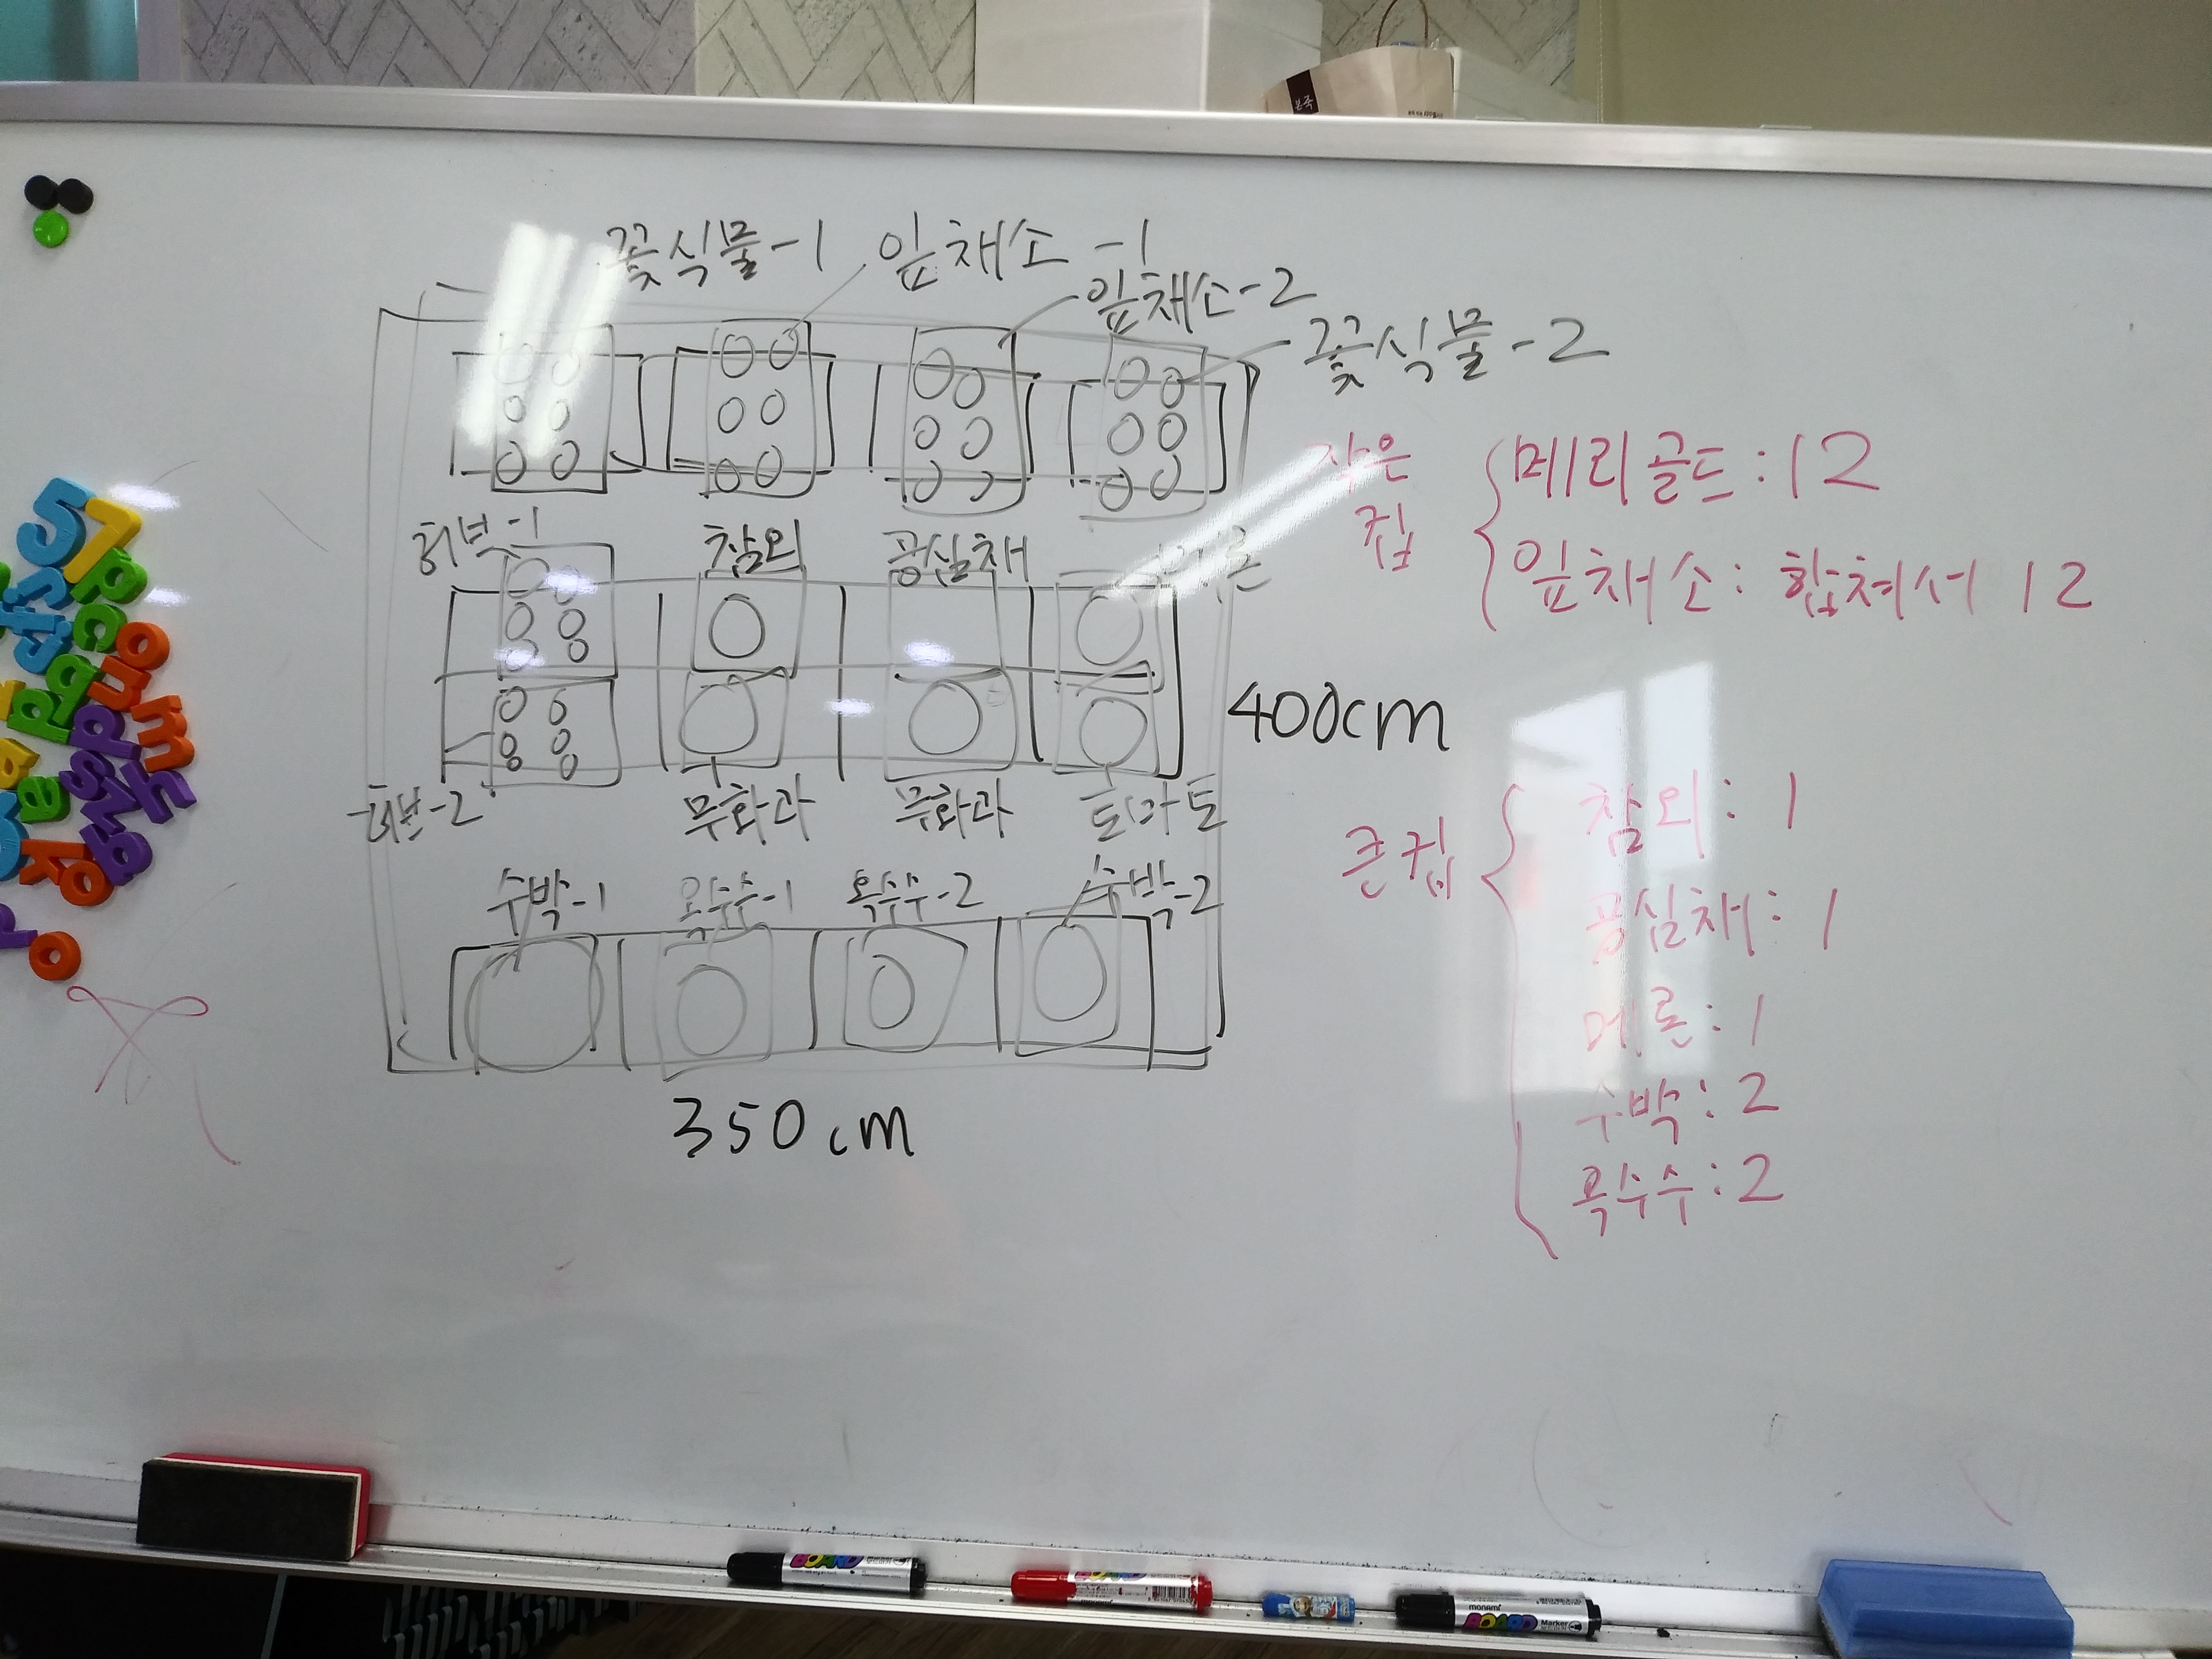 본죽
꽃식물-1 잎채소 -1
잎채소-2
꽃식물-2
허브-1 참외 공심채
허브-2 무화과 무화과 토마토
400cm
수박-1 옥수수-1 옥수수-2 수박-2
350cm
작은 컵
메리골드: 12
잎채소: 합쳐서 12
큰 컵
참외: 1
공심채: 1
메론: 1
수박: 2
옥수수: 2
BOARD
BOARD
monami
BOARD Marker